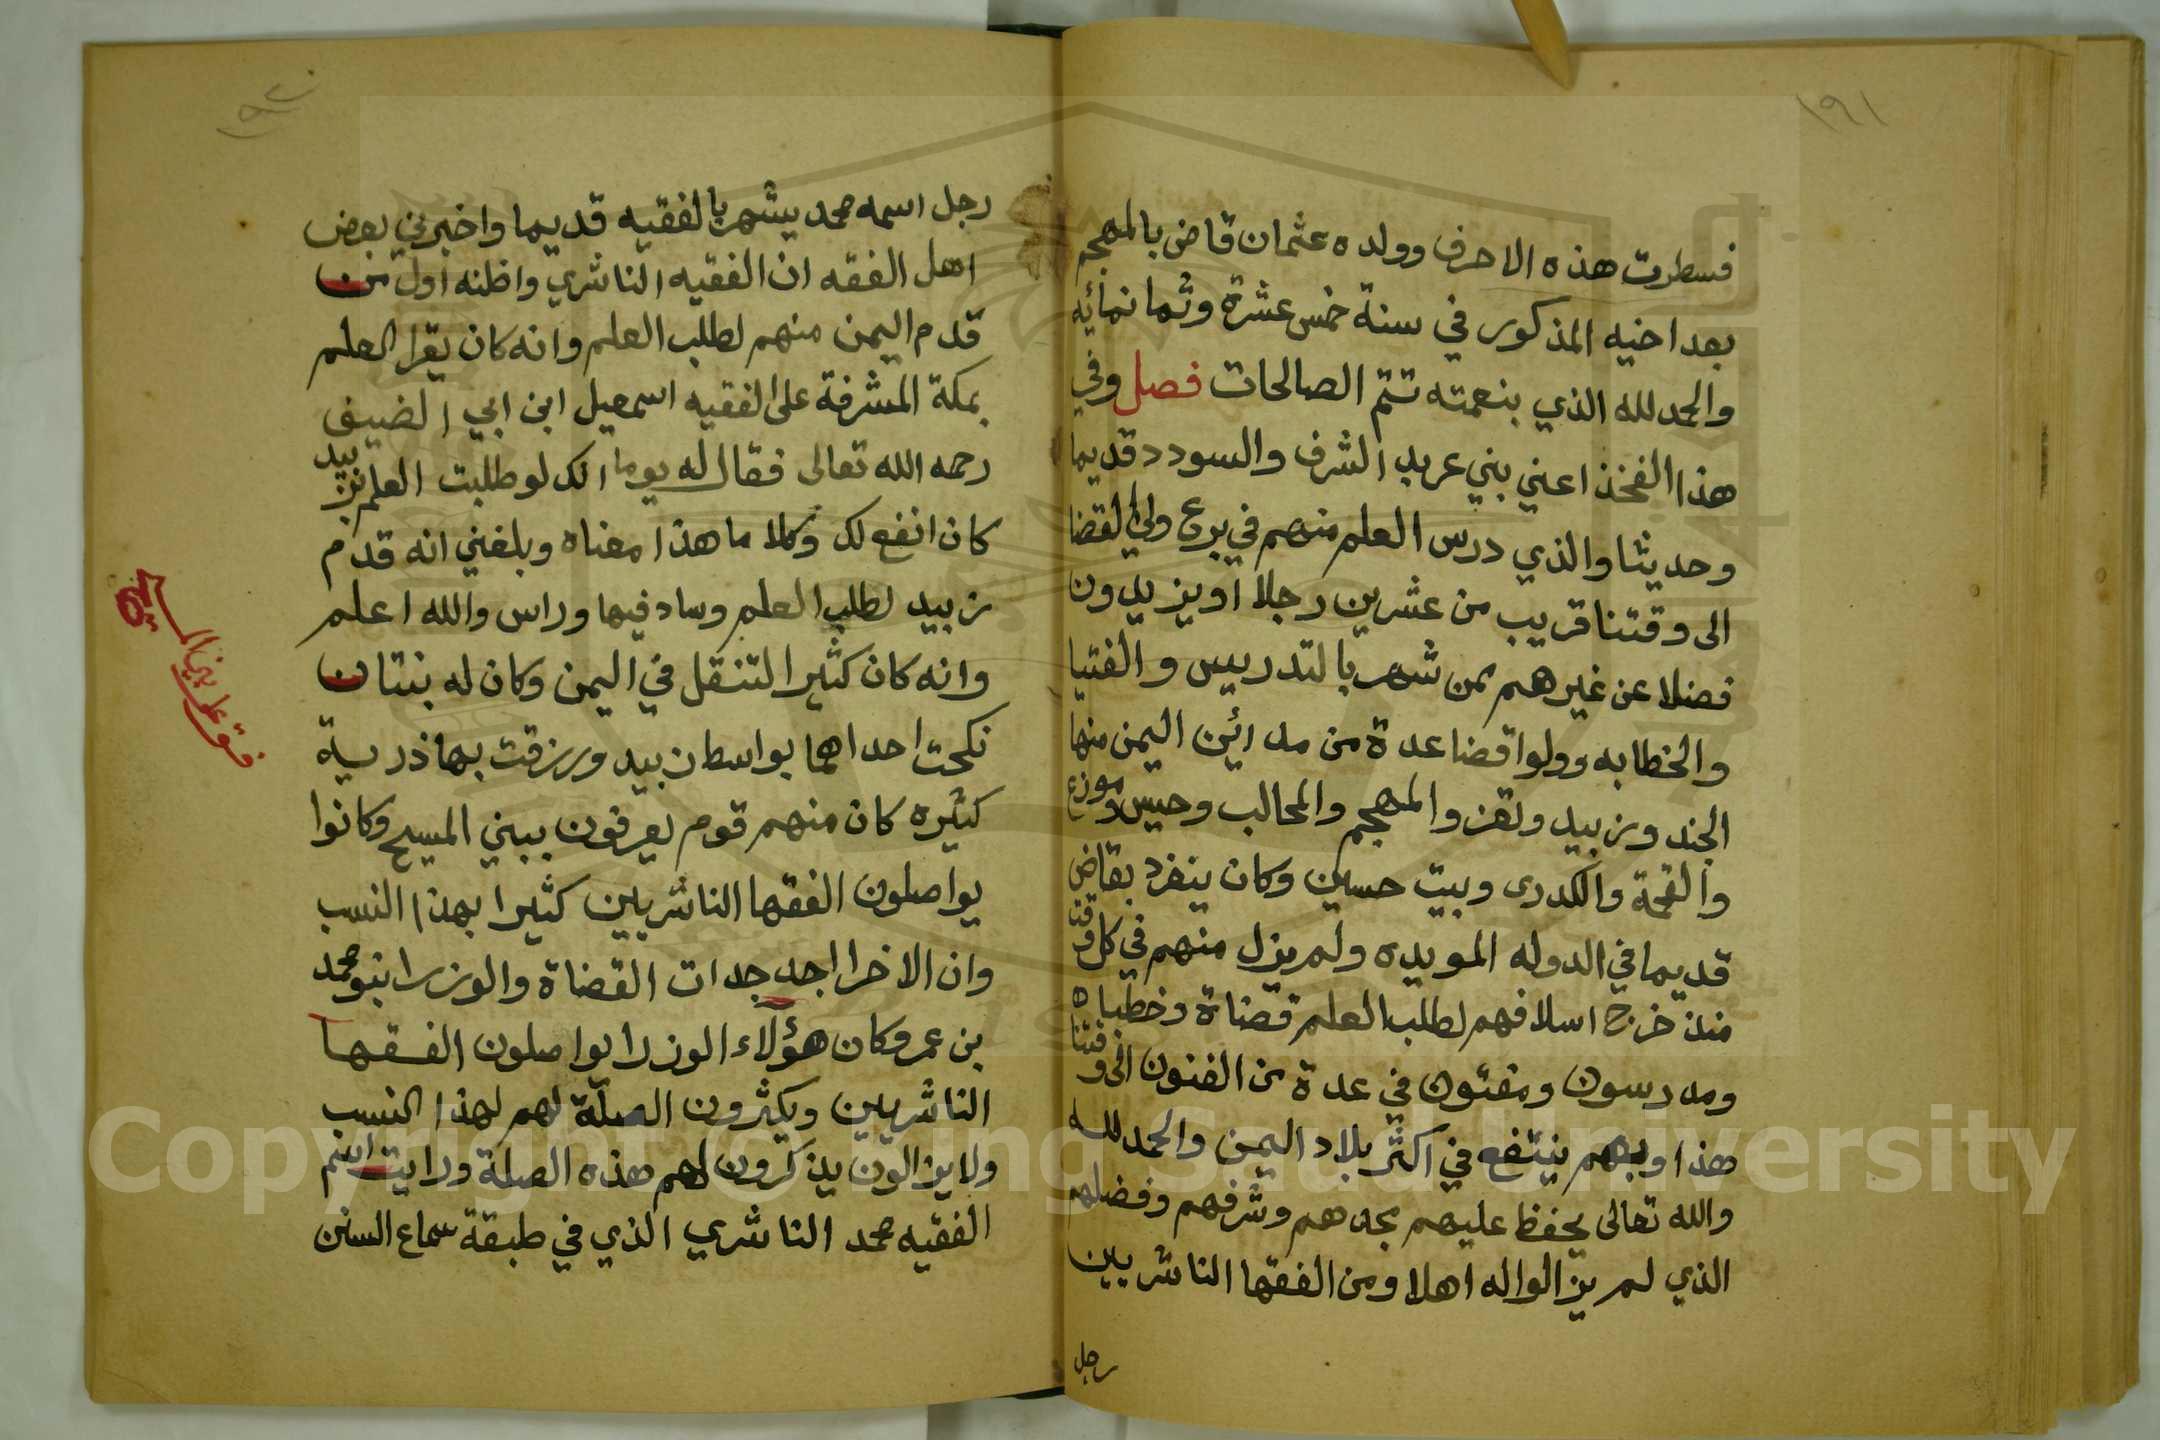 ١٩١
فسطرت هذه الاحرف وولده عثمان قاض بالمهجم
بعد اخيه المذكور في سنة خمس عشرة وثمانمائه
والحمد لله الذي بنعمته تتم الصالحات فصل وفي
هذا الفخذ اعني بني عربد الشرف والسودد قديما
وحديثا والذي درس العلم منهم في برع وولي القضا
الى وقتنا قريب من عشرين رجلا او يزيدون
فضلا عن غيرهم ممن شهر بالتدريس والفتيا
والخطابه وولوا قضا عدة من مدائن اليمن منها
الجند وزبيد وتعز والمهجم والمحالب وحيس وموزع
والقحمة والكدرى وبيت حسين وكان ينفرد بقاض
قديما في الدوله المويده ولم يزل منهم في كل وقت
منذ خرج اسلافهم لطلب العلم قضاة وخطباه
ومدرسون ومفتون في عدة من الفنون الى وقتنا
هذا وبهم ينتفع في اكثر بلاد اليمن والحمد لله
والله تعالى يحفظ عليهم مجدهم وشرفهم وفضلهم
الذي لم يزالوا له اهلا ومن الفقها الناشريين
رجل
١٩٢
رجل اسمه محمد يشهر بالفقيه قديما واخبرني بعض
اهل الفقه ان الفقيه الناشري واظنه اول من
قدم اليمن منهم لطلب العلم وانه كان يقرا العلم
بمكة المشرفة على الفقيه اسمعيل ابن ابي الضيف
رحمه الله تعالى فقال له يوما لك لو طلبت العلم بزبيد
كان انفع لك وكلاما هذا معناه وبلغني انه قدم
زبيد لطلب العلم وساد فيها وراس والله اعلم
وانه كان كثير التنقل في اليمن وكان له بنتان
نكحت احداهما بواسط زبيد ورزقت بها ذرية
كثيره كان منهم قوم يعرفون ببني المسيح وكانوا
يواصلون الفقها الناشريين كثيرا بهذا النسب
وان الاخرا جد جدات القضاة والوزرا بنو محمد
بن عمر وكان هؤلاء الوزرا يواصلون الفقها
الناشريين ويكثرون الصلة لهم لهذا النسب
ولا يزالون يذكرون لهم هذه الصلة ورايت اسم
الفقيه محمد الناشري الذي في طبقة سماع السنن
Copyright © King Saud University